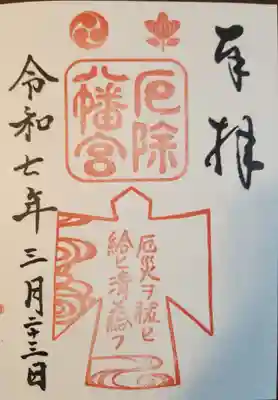 奉拝
厄除
八幡宮
厄災ヲ祓ヒ
給ヒ清メ給フ
令和七年三月二十三日